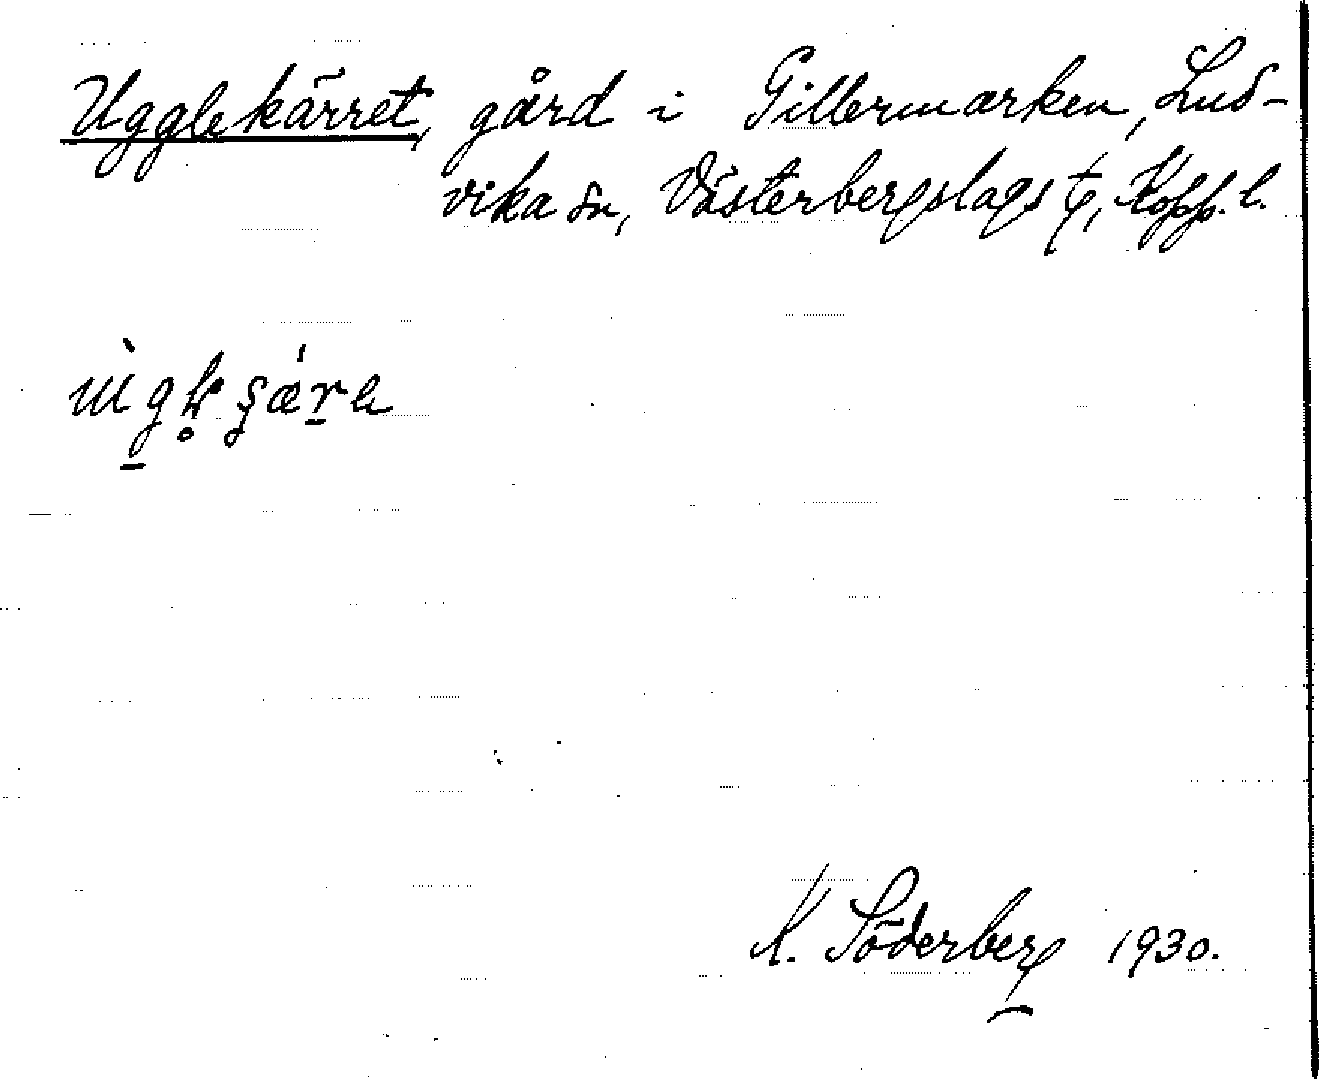 Ugglekärret, gård i Gillermarken, Lud-
vika sn, Västerbergslags tg, Kopp. l.
K. Söderberg 1930.